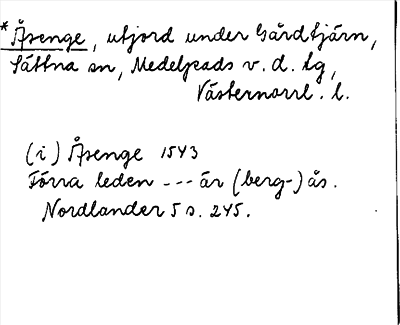 *Åsenge, utjord under Gårdtjärn,
Sättna sn, Medelpads v. d. tg,
Västernorrl. l.
(i) Åsenge 1543
Förra leden --- är (berg-) ås.
Nordlander 5 s. 245.